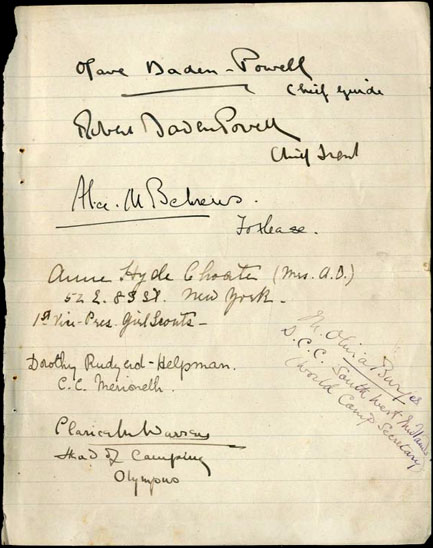 Olave Baden-Powell
Chief Guide
Robert Baden Powell
Chief Scout
Alice M Behrens.
Foxlease.
Anne Hyde Choate (Mrs. A.D.)
52 E. 83 St. New York.
1st Vice-Pres. Girl Scouts
Dorothy Rudyerd-Helpman.
C.C. Merioneth.
M. Olivia
D.C.C. South West Midlands
(World Camp Secretary
Clarice M
Head of Camping
Olympus